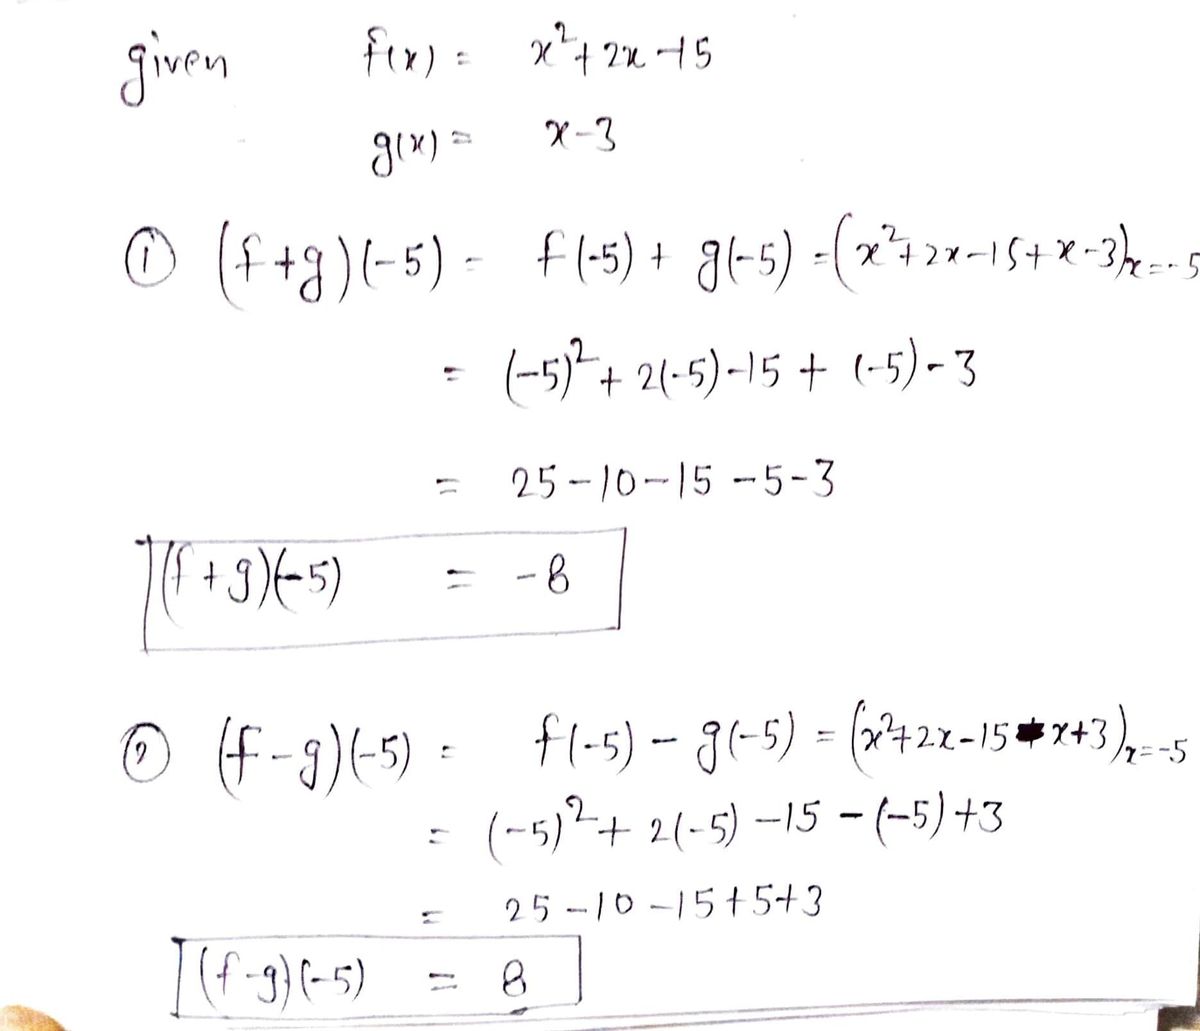 given f(x) = x²+2x-15
g(x) = x-3
① (f+g)(-5) = f(-5) + g(-5) = (x²+2x-15+x-3)x=-5
= (-5)²+2(-5)-15+(-5)-3
= 25-10-15-5-3
(f+g)(-5) = -8
② (f-g)(-5) = f(-5) - g(-5) = (x²+2x-15-x+3)x=-5
= (-5)²+2(-5)-15-(-5)+3
= 25-10-15+5+3
(f-g)(-5) = 8